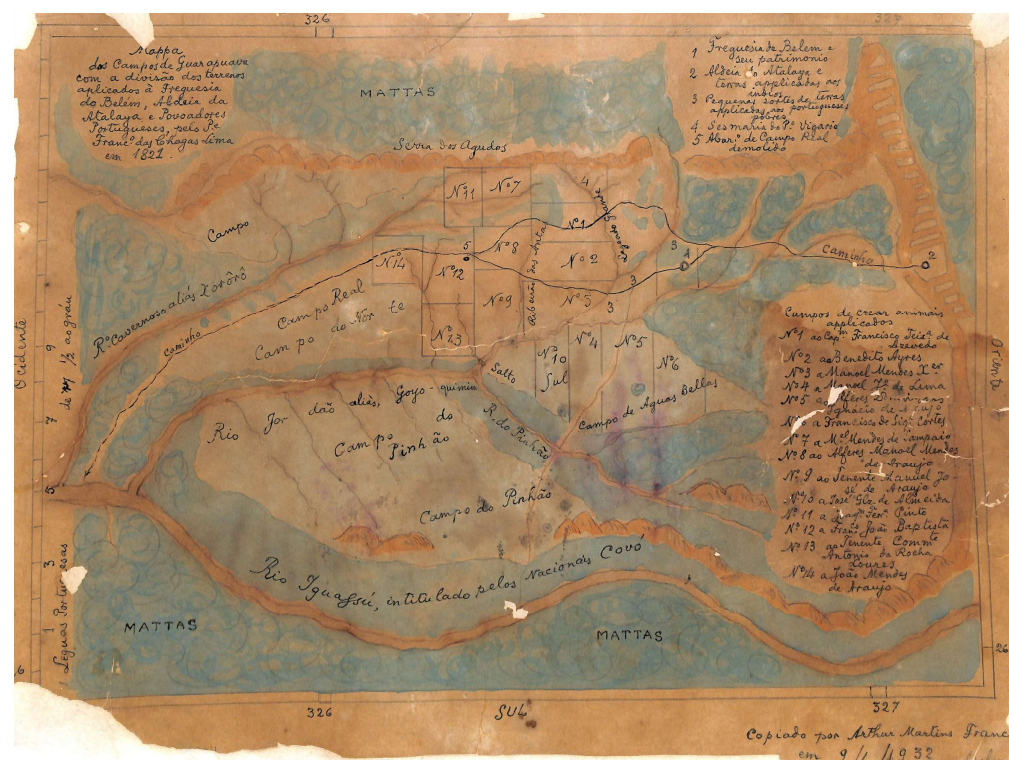 326
327
Mappa
dos Campos de Guarapuava
com a divisão dos terrenos
aplicados à Freguesia
do Belém, Aldeia da
Atalaya e Povoadores
Portugueses, pelo Pe
Franco. das Chagas Lima
em 1821.
MATTAS
1 Freguesia de Belem e
seu patrimonio
2 Aldeia do Atalaya e
terras applicadas aos
indios
3 Pequenas sortes de terras
applicadas aos portugueses
pobres
4 Sesmaria do Po. Vigario
5 Abar.o de Campo Real
demolido
Serra dos Agudos
Campo
Nº 11
Nº 7
4
Lageado Grande
Nº 1
5
Nº 8
Ribeirão das Antas
Nº 2
3
1
Caminho
2
Nº 14
Nº 12
Nº 9
Nº 3
3
3
Rº Cavernoso aliás Xorôrô
Caminho
Campo Real
do Norte
Campo
Nº 13
Nº 10
Nº 4
Nº 5
Nº 6
Sul
Salto
Rio Jordão aliás, Goyo-quimim
Campo do
Pinhão
R. do Pinhão
Campo de Aguas Bellas
Campo do Pinhão
Rio Iguassú, intitulado pelos Nacionais Covó
MATTAS
MATTAS
Campos de crear animais
applicados
Nº 1 ao Capm. Francisco Teixa. de
Azevedo
Nº 2 ao Benedito Ayres
Nº 3 a Manoel Mendes Xer
Nº 4 a Manoel Je. de Lima
Nº 5 ao Alferes
Ignacio de Araujo
Nº 6 a Francisco de Siqa. Côrtes
Nº 7 a Mel. Mendes de Sampaio
Nº 8 ao Alferes Manoel Mendes
de Araujo
Nº 9 ao Tenente Manuel Jo-
sé de Araujo
Nº 10 a José Glz. de Almeida
Nº 11 a Joaqm. Ferra. Pinto
Nº 12 a Franco. João Baptista
Nº 13 ao Tenente Comme
Antonio da Rocha
Loures
Nº 14 a João Mendes
de Araujo
Ocidente
Oriente
de 17 1/2 ao gráu
Leguas Portuguesas
9
7
5
3
1
26
6
326
SUL
327
Copiado por Arthur Martins Franc
em 9/1/1932